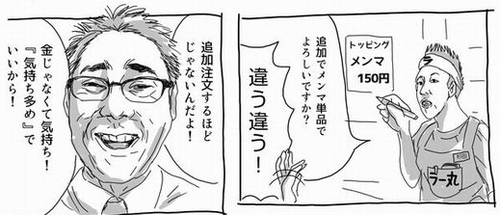 トッピング
メンマ
150円
追加でメンマ単品で
よろしいですか？
違う違う！
ラー丸
追加注文するほど
じゃないんだよ！
金じゃなくて気持ち！
『気持ち多め』で
いいから！